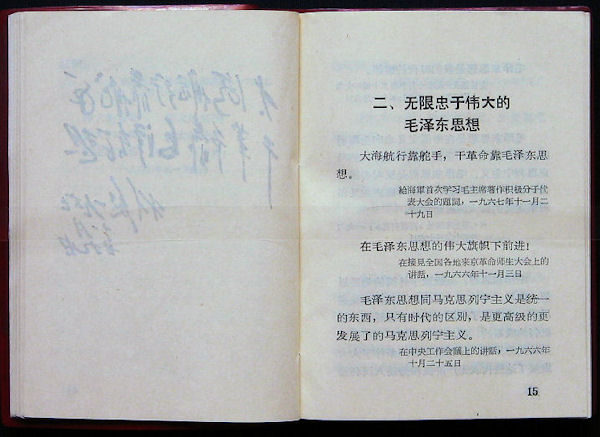 二、无限忠于伟大的
毛泽东思想
大海航行靠舵手，干革命靠毛泽东思
想。
給海軍首次学习毛主席著作积极分子代
表大会的題詞，一九六七年十一月二
十九日
在毛泽东思想的伟大旗帜下前进！
在接見全国各地来京革命师生大会上的
讲話，一九六六年十一月三日
毛泽东思想同马克思列宁主义是统一
的东西，只有时代的区别，是更高级的更
发展了的马克思列宁主义。
在中央工作会議上的讲話，一九六六年
十月二十五日
15